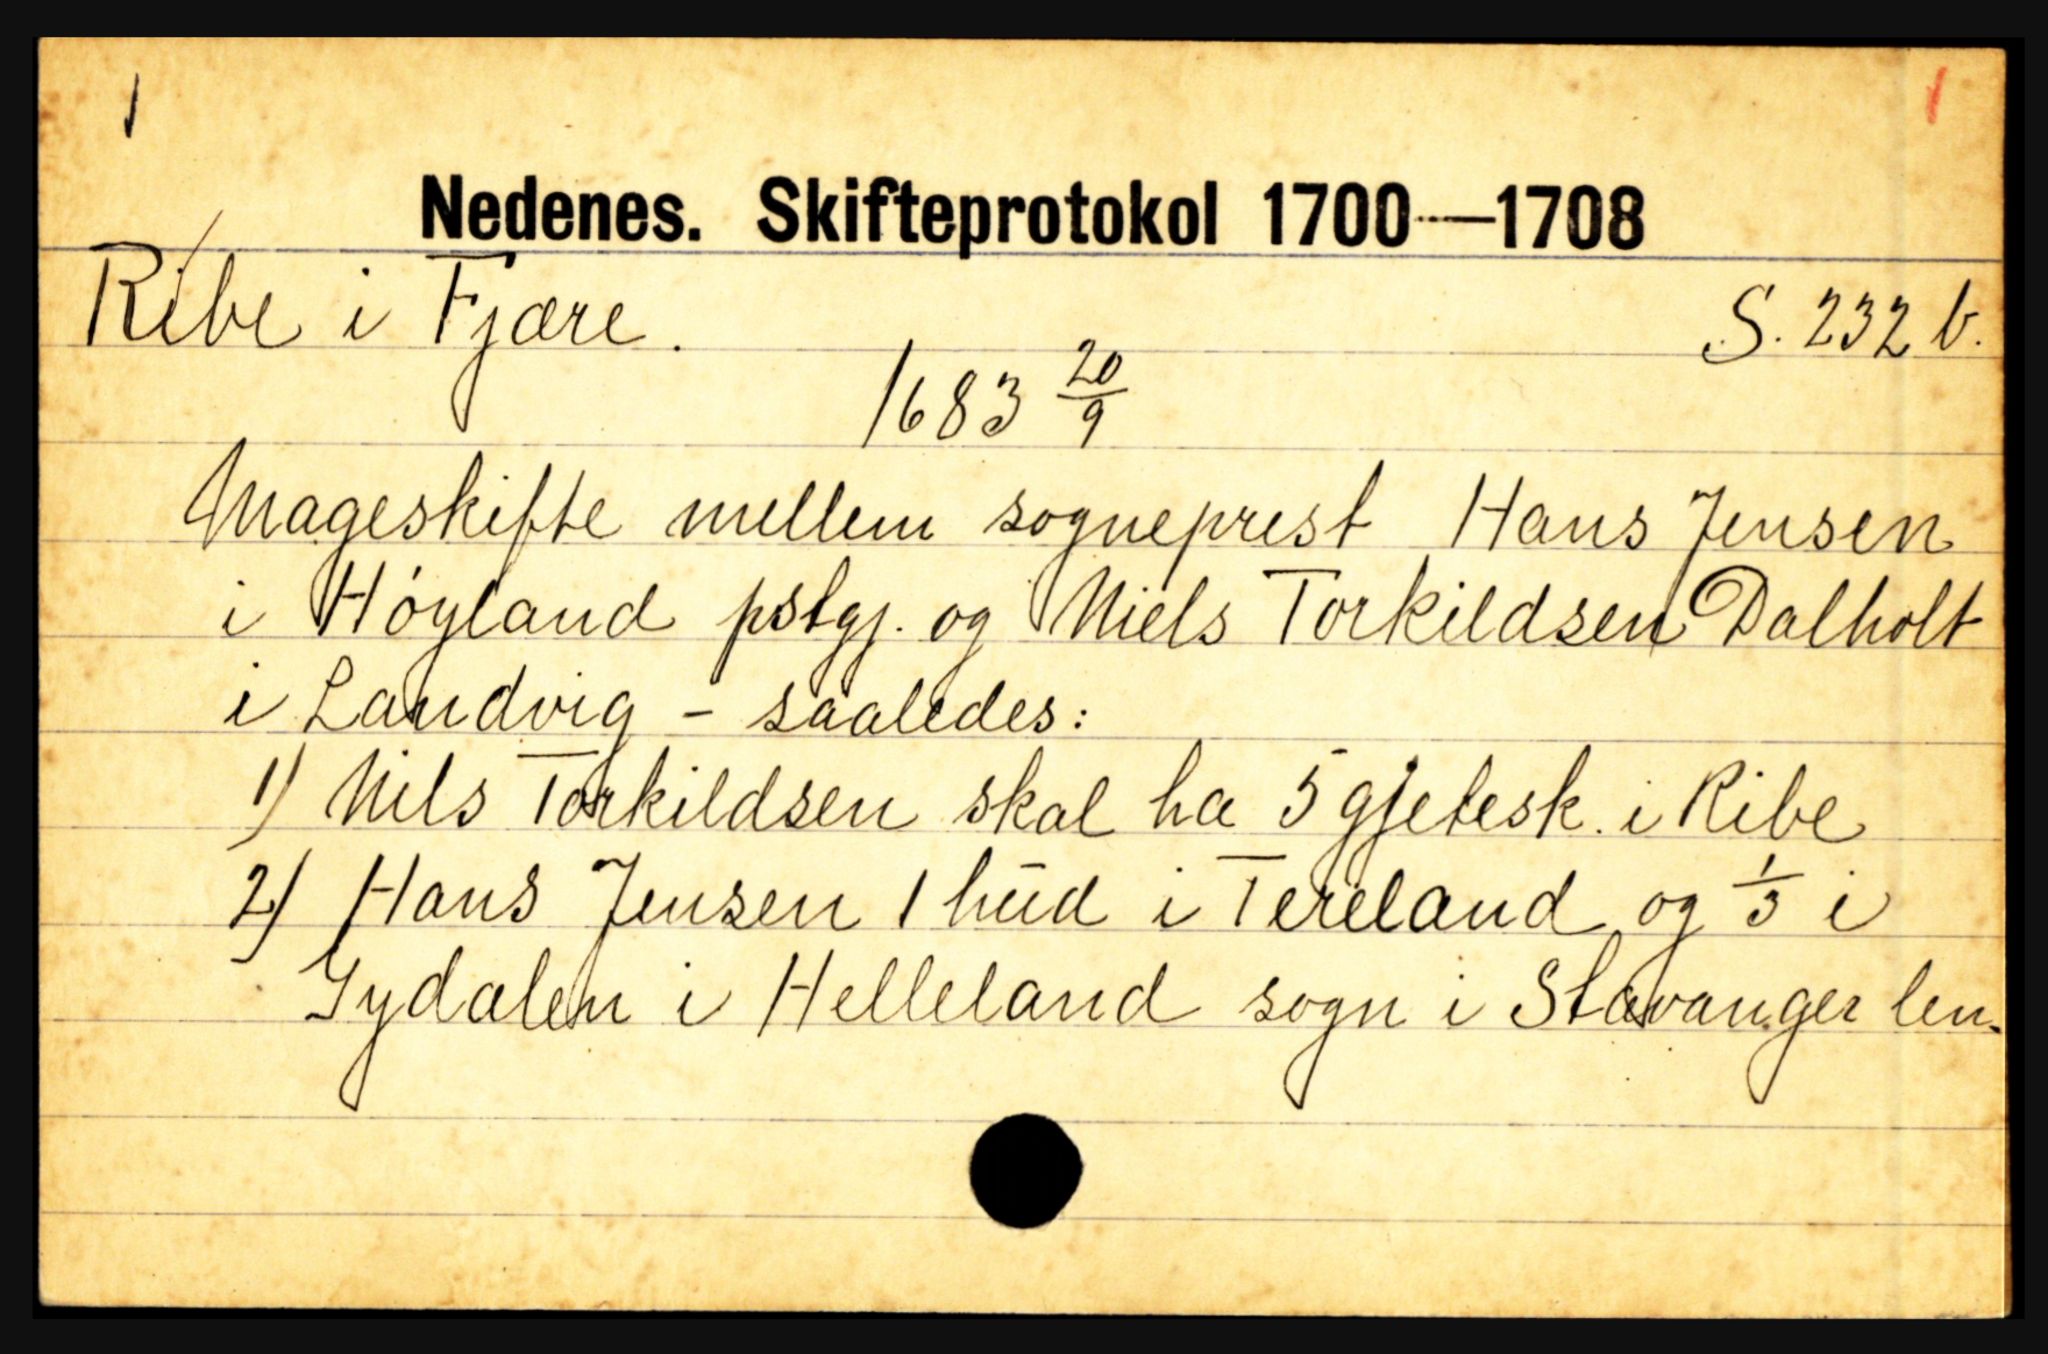 1 1
Nedenes. Skifteprotokol 1700—1708
Ribe i Fjære. S. 232 b.
1683 20/9
Mageskifte mellem sogneprest Hans Jensen
i Höyland pstgj. og Niels Torkildsen Dalholt
i Landvig - saaledes:
1) Nils Torkildsen skal ha 5 gjetesk. i Ribe
2) Hans Jensen 1 hud i Tereland og 1/3 i
Gydalen i Helleland sogn i Stavanger len.